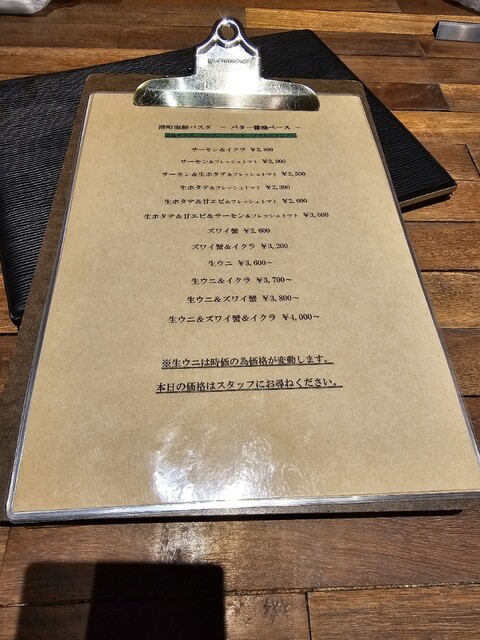 港町海鮮パスタ － バター醤油ベース －
サーモン&イクラ ¥2,800
サーモン&フレッシュトマト ¥2,000
サーモン&生ホタテ&フレッシュトマト ¥2,500
生ホタテ&フレッシュトマト ¥2,300
生ホタテ&甘エビ&フレッシュトマト ¥2,600
生ホタテ&甘エビ&サーモン&フレッシュトマト ¥3,000
ズワイ蟹 ¥2,600
ズワイ蟹&イクラ ¥3,200
生ウニ ¥3,600～
生ウニ&イクラ ¥3,700～
生ウニ&ズワイ蟹 ¥3,800～
生ウニ&ズワイ蟹&イクラ ¥4,000～
※生ウニは時価の為価格が変動します。
本日の価格はスタッフにお尋ねください。